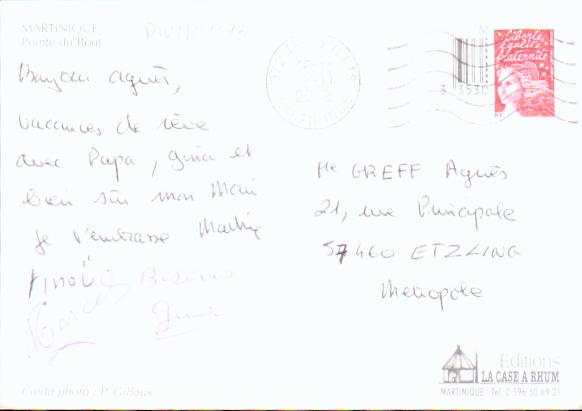 MARTINIQUE
Pointe du Bout
Bonjour Agnès,
vacances de rêve
avec Papa, Gina et
bien sûr mon Mari
je t'embrasse Martine
Bisous
Gina
Liberté
égalité
fraternité
3 3530
2002
MARTINIQUE
Me GREFF Agnès
21, rue Principale
57460 ETZLING
Métropole
Editions
LA CASE A RHUM
MARTINIQUE - Tel 0 596 50 69 21
Crédit photo : P. Giloux